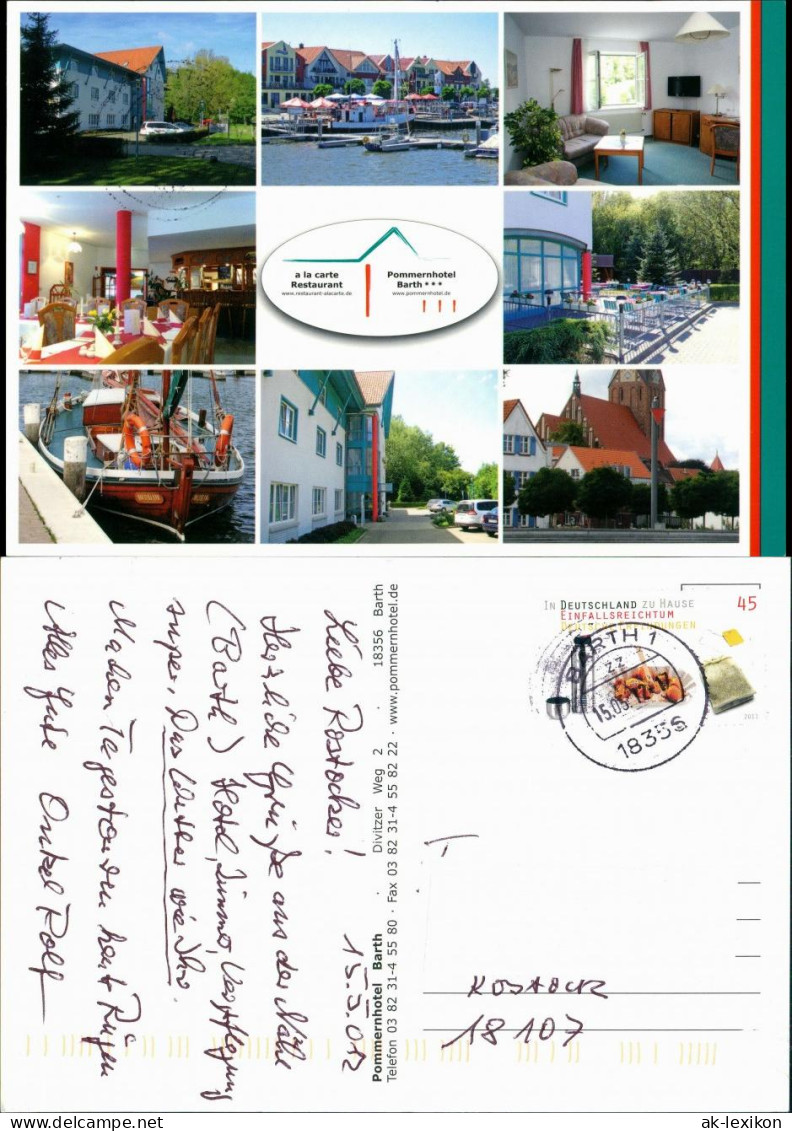 a la carte
Restaurant
www.restaurant-alacarte.de
Pommernhotel
Barth ***
www.pommernhotel.de
Liebe Rostocker! 15.5.012
Herzliche Grüße aus der Nähe
(Barth) Hotel, Zimmer, Verpflegung
super. Das Wetter wie Ihr.
Machen Tagestouren heut Rügen
Alles Gute Onkel Rolf
Pommernhotel Barth · Divitzer Weg 2 · 18356 Barth
Telefon 03 82 31-4 55 80 · Fax 03 82 31-4 55 82 22 · www.pommernhotel.de
IN DEUTSCHLAND ZU HAUSE 45
EINFALLSREICHTUM
2011
BARTH 1
ZZ
15.05.12-17
18356
ROSTOCK
18107
delcampe.net
ak-lexikon